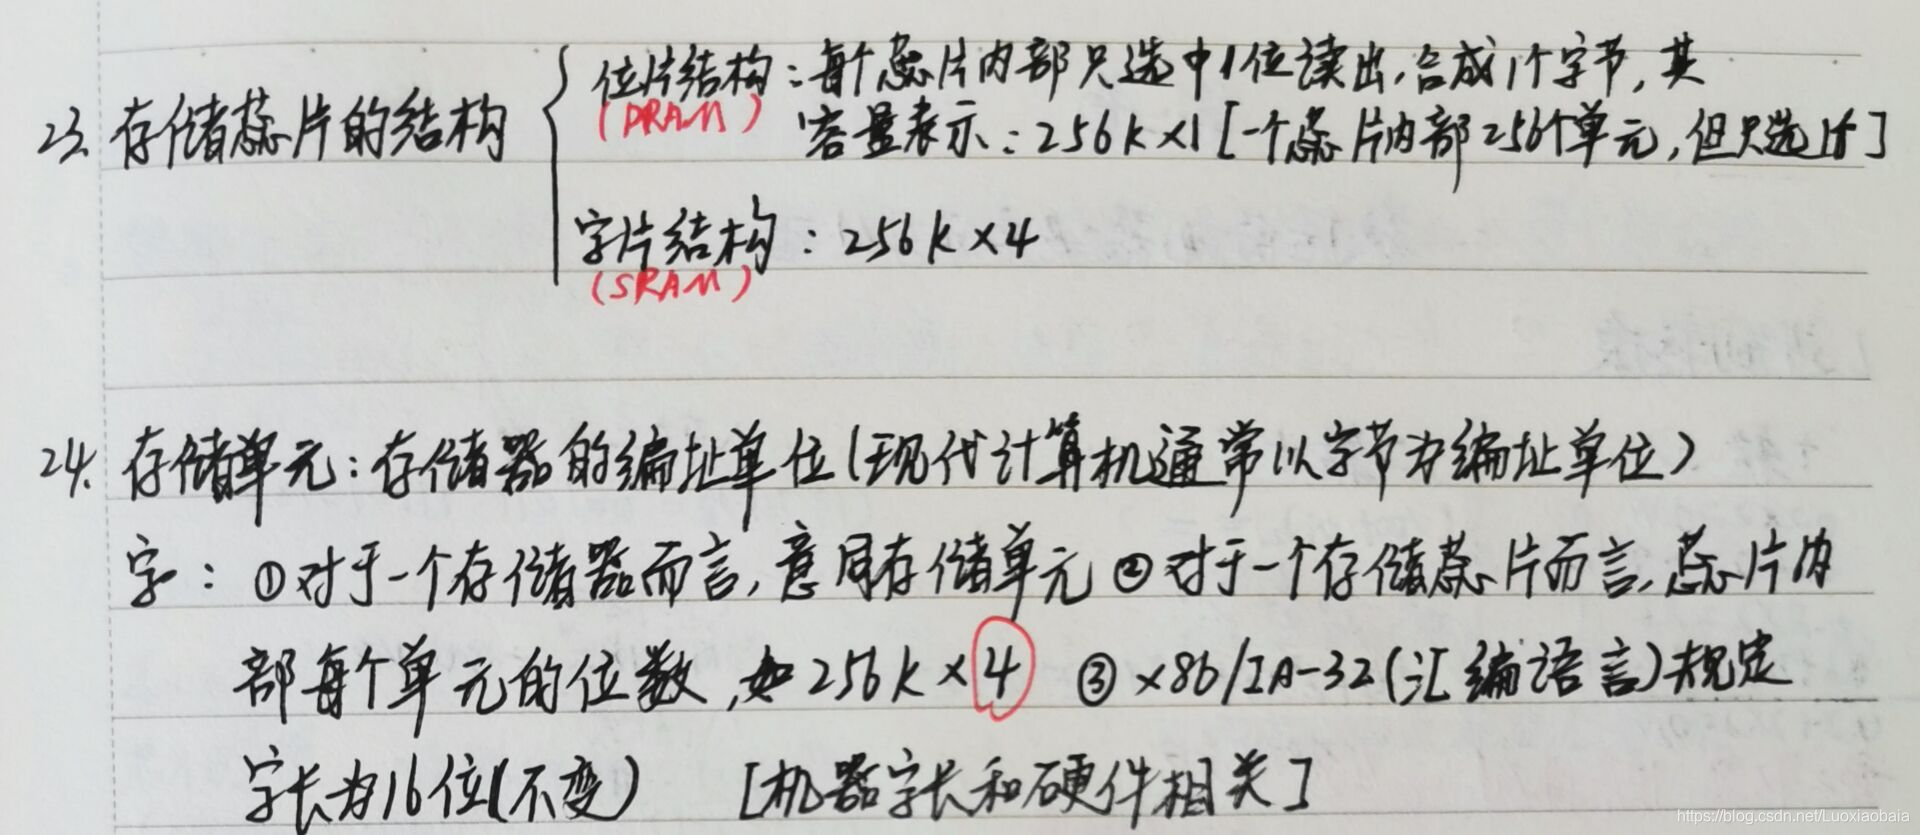 23. 存储芯片的结构
位片结构：每个芯片内部只选中1位读出，合成1个字节，其
(DRAM)
容量表示：256K×1 [一个芯片内部256个单元，但只选1个]
字片结构：256K×4
(SRAM)
24. 存储单元：存储器的编址单位(现代计算机通常以字节为编址单位)
字：①对于一个存储器而言，意同存储单元 ②对于一个存储芯片而言，芯片内
部每个单元的位数，如256K×4 ③x86/IA-32(汇编语言)规定
字长为16位(不变) [机器字长和硬件相关]
https://blog.csdn.net/Luoxiaobaia